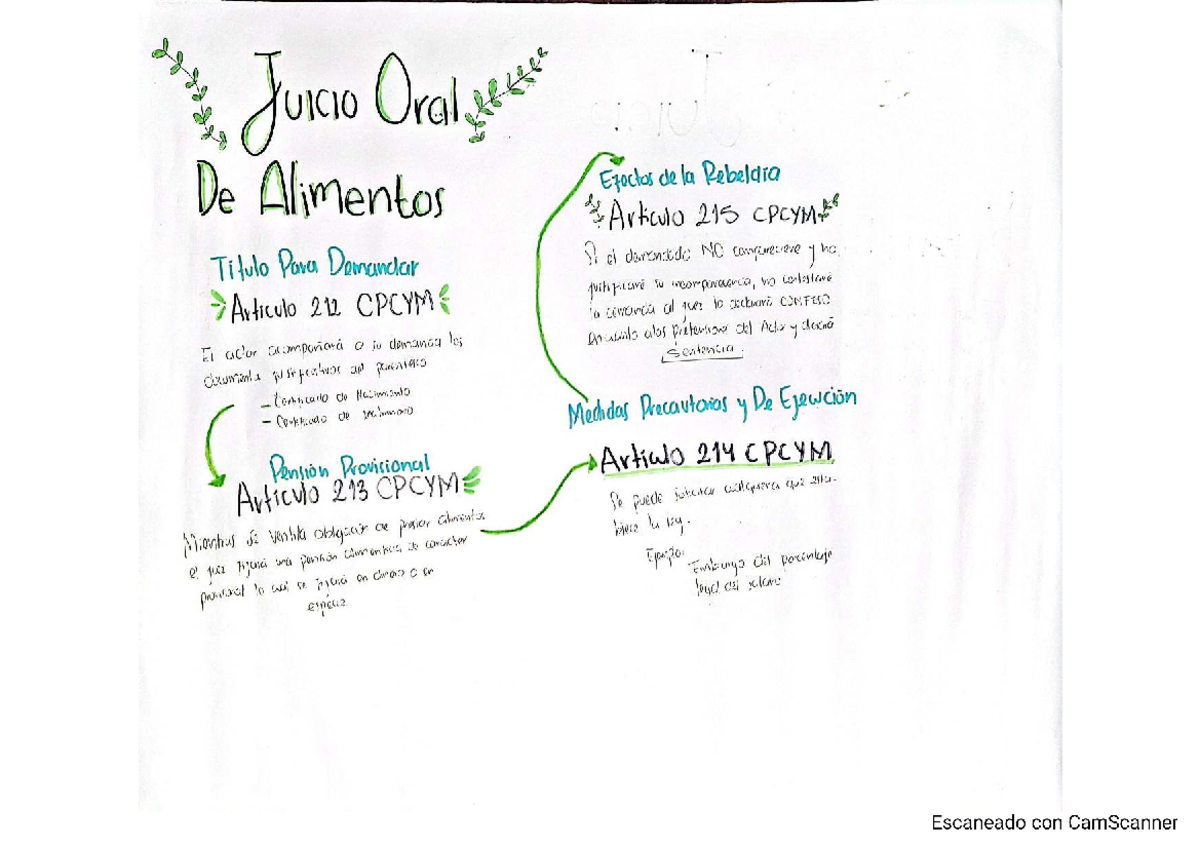 Juicio Oral
De Alimentos
Título Para Demandar
Artículo 212 CPCYM
El actor acompañará a su demanda los
documentos justificativos del parentesco
- Certificado de Nacimiento
- Certificado de matrimonio
Pensión Provisional
Artículo 213 CPCYM
Mientras se ventila obligación de prestar alimentos
el juez fijará una pensión alimenticia de carácter
provisional lo cual se fijará en dinero o en
especie
Medidas Precautorias y De Ejecución
Artículo 214 CPCYM
Se puede solicitar cualquiera que esta-
blece la ley.
Ejemplo:
Embargo del porcentaje
legal del salario
Efectos de la Rebeldía
Artículo 215 CPCYM
Si el demandado NO compareciere y no
justificare su incomparecencia, no contestare
la demanda el juez lo declarará CONFESO
En cuanto a las pretensiones del Actor y dictará
Sentencia.
Escaneado con CamScanner